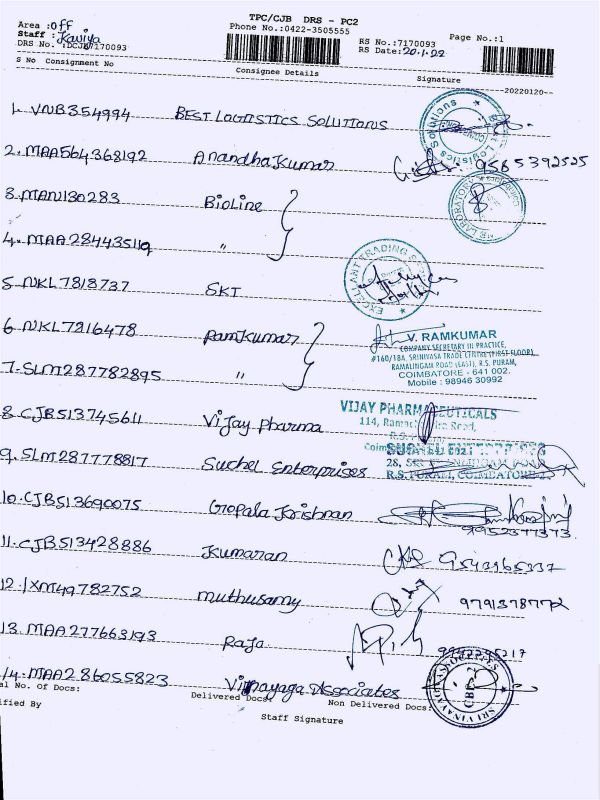 TPC/CJB DRS - PC2
Area : Off
Phone No.:0422-3505555
Staff : Kaviya
RS No.:7170093 Page No.:1
DRS No. :DCJB7170093
RS Date: 20.1.22
S No Consignment No Consignee Details Signature
20220120
1. VNB354994 BEST LOGISTICS SOLUTIONS
2. MAA564368192 Anandhakumar 9585392525
3. MAN130283 Bioline
4. MAA284435119 "
5. NKL7818737 SKT
EXCELLANT TRADING
6. NKL7816478 Ramkumar
V. RAMKUMAR
COMPANY SECRETARY IN PRACTICE,
#160/18A, SRINIVASA TRADE CENTRE (FIRST FLOOR),
RAMALINGAM ROAD (EAST), R.S. PURAM,
COIMBATORE - 641 002.
Mobile : 98946 30992
7. SLM287782895 "
VIJAY PHARMACEUTICALS
8. CJB513745611 Vijay Pharma
9. SLM287778817 Suchel Enterprises
R.S. PURAM, COIMBATORE
10. CJB513690075 Gopala Krishnan
9952377373
11. CJB513428886 Kumaran
12. 1XM49782752 Muthusamy
13. MAA277663193 Raja
14. MAA286055823 Vinayaga Associates
al No. of Docs: Delivered Docs: Non Delivered Docs:
ified By Staff Signature